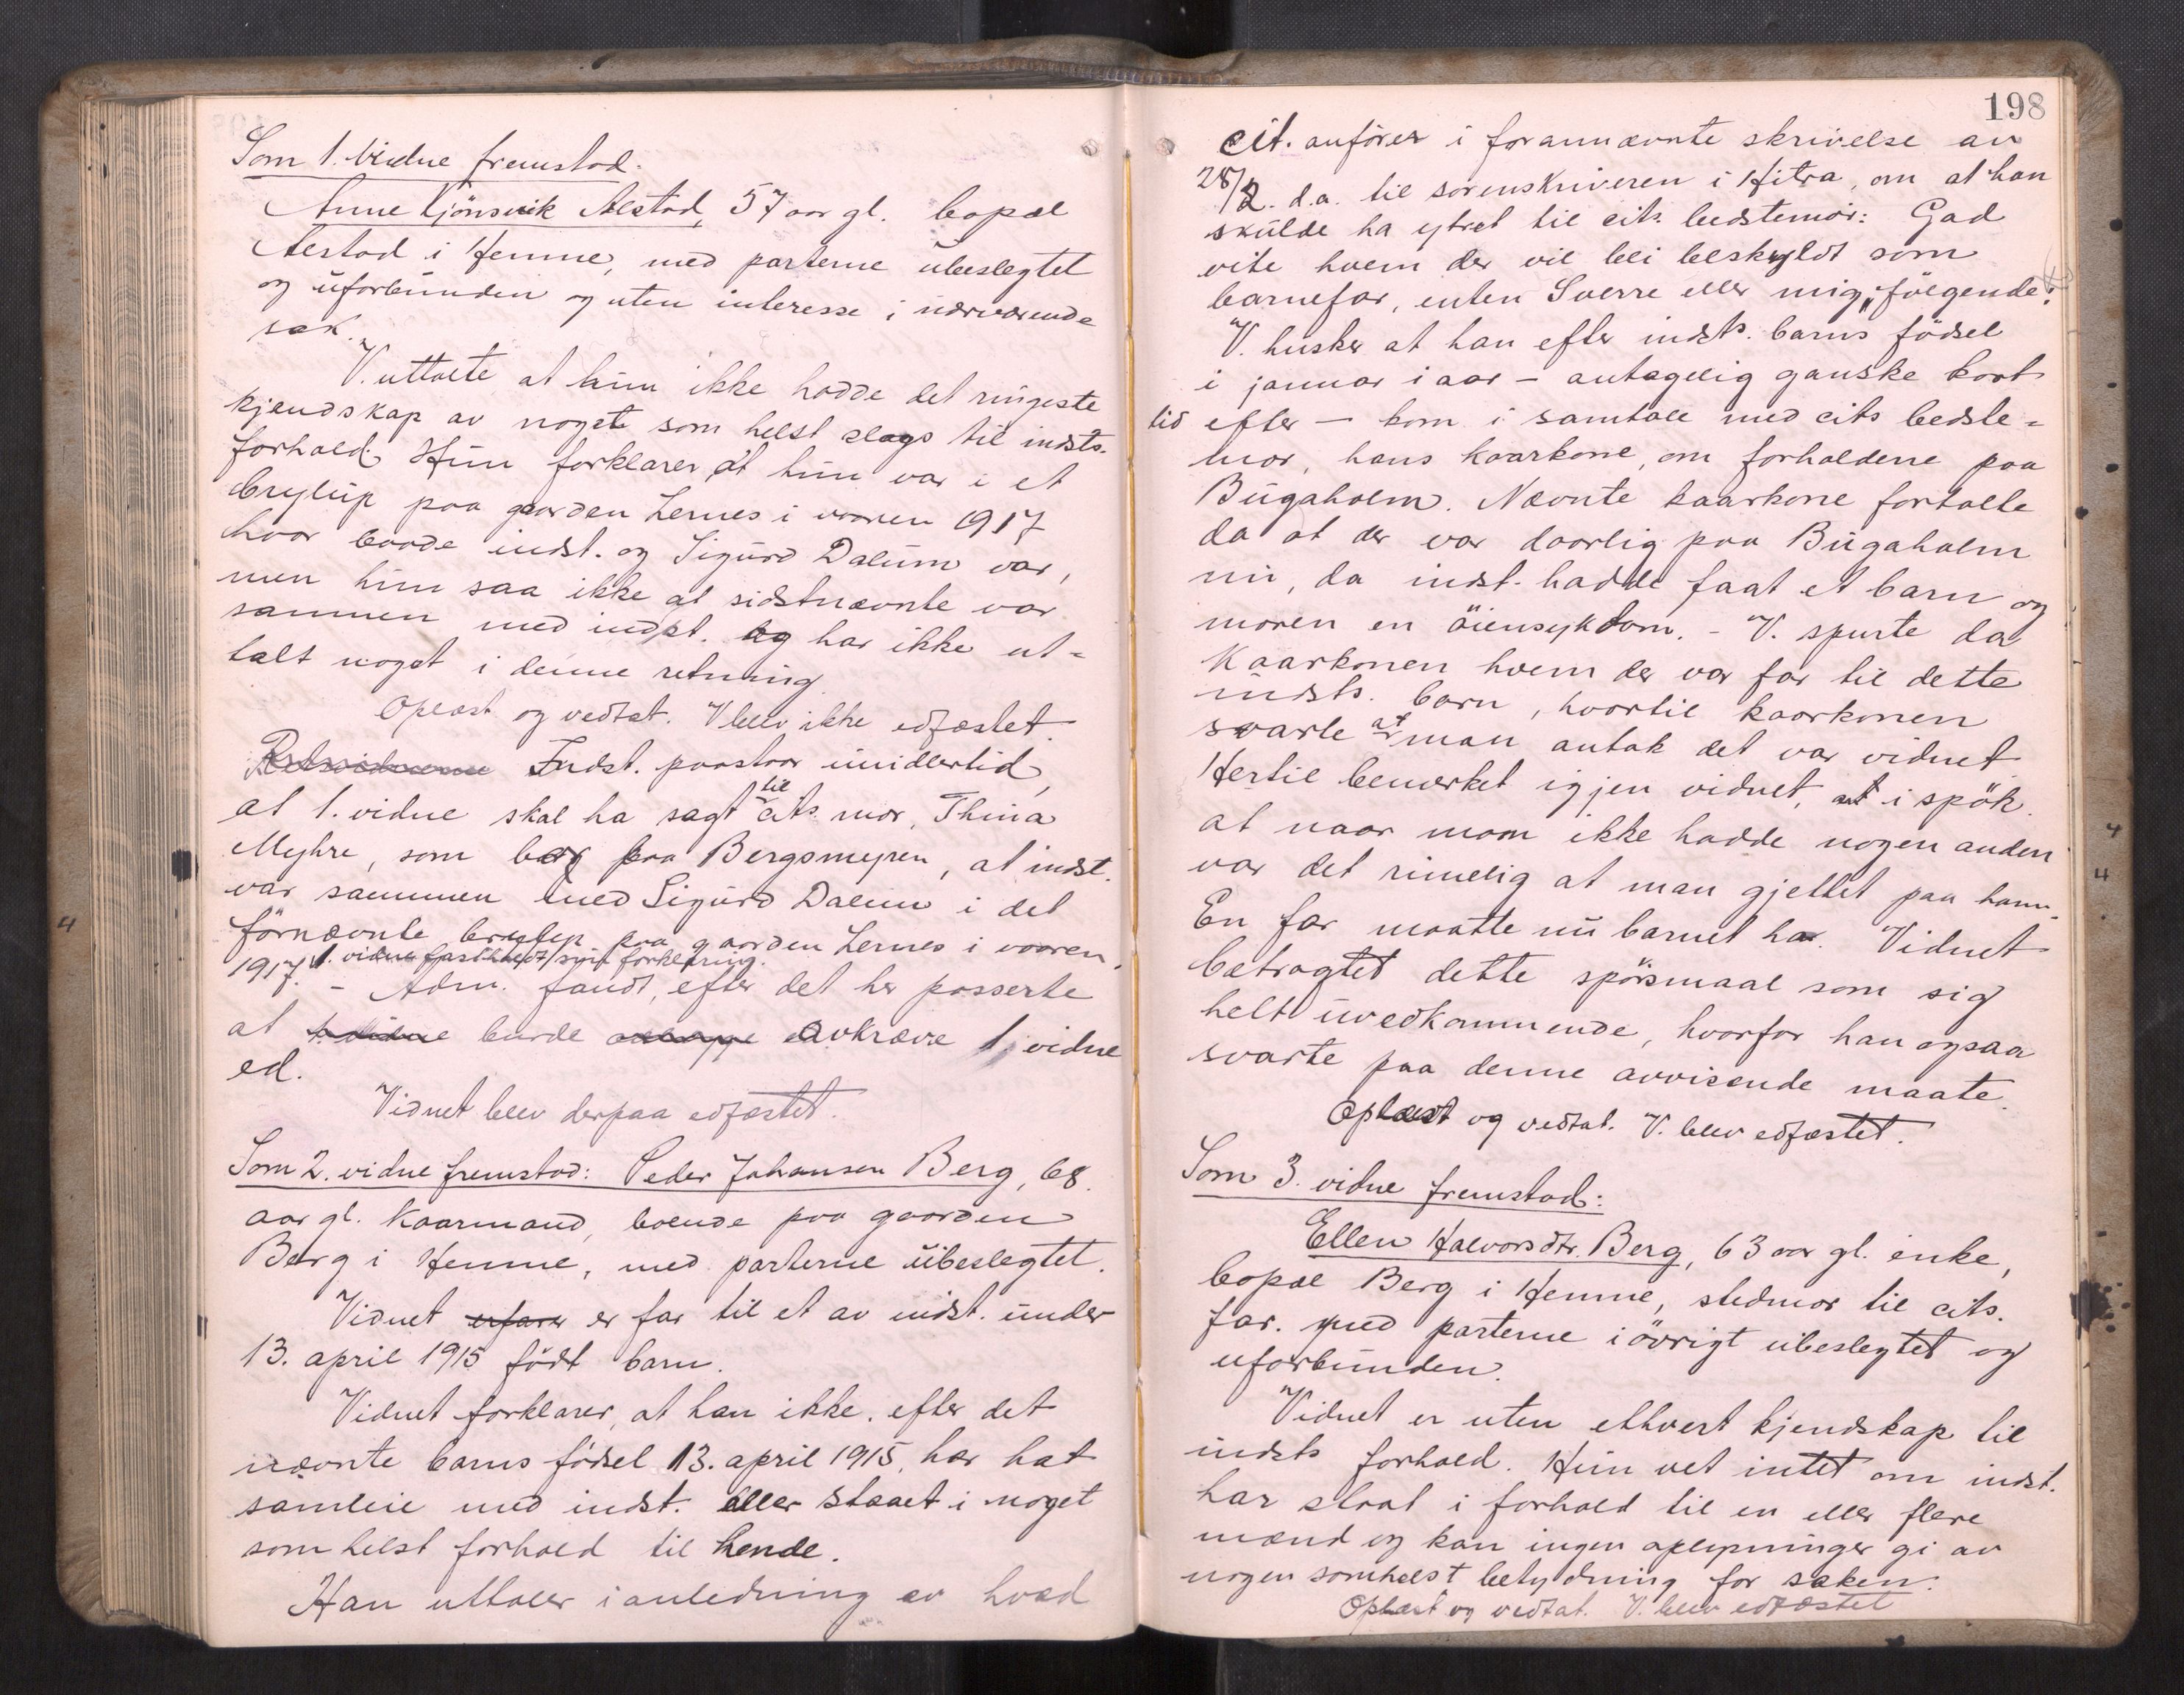 Som 1. vidne fremstod.
Anne Kjönsvik Alstad, 57 aar gl. bopæl
Aalstad i Hemne, med parterne übeslegtet
og üforbünden og uten interesse i nærværende
sak.
V. uttalte at hün ikke hadde det ringeste
kjendskap av noget som helst slags til indsts.
forhold. Hün forklarer at hün var i et
brylüp paa gaarden Lernes i vaaren 1917
hvor baade indst. og Sigürd Dalüm var,
men hün saa ikke at sidstnævnte var
sammen med indst. og har ikke ut-
talt noget i denne retning.
Oplæst og vedtat. V blev ikke edfæstet.
Retsvidnerne Indst. paastaar imidlertid,
at 1. vidne skal ha sagt til cits. mor, Thina
Myhre, som bor paa Bergsmyren, at indst.
var sammen med Sigürd Dalüm i det
förnævnte brylup paa gaarden Lernes i vaaren
1917. 1. vidne fastholdt sin forklaring.
- Adm. fandt, efter det her passerte
at 1. vidne burde avlægge avkræve 1. vidne
ed.
Vidnet blev derpaa edfæstet.
Som 2. vidne fremstod: Peder Johansen Berg, 68
aar gl. Kaarmand, boende paa gaarden
Berg i Hemne, med parterne übeslegtet.
Vidnet erfarer er far til et av indst. ünder
13. april 1915 födt barn.
Vidnet forklarer, at han ikke, efter det
nævnte barns födsel 13. april 1915, har hat
samleie med indst. eller staaet i noget
som helst forhold til hende.
Han uttaler i anledning av hvad
198
cit. anförer i forannævnte skrivelse av
28/2. d.a. til sorenskriveren i Hitra, om at han
skülde ha ytret til cits. bedstemor: Gad
vite hvem der vil bli beskyldt som
barnefar, enten Sverre eller mig, fölgende:
V. husker at han efter indsts. barns födsel
i januar i aar - antagelig ganske kort
tid efter - kom i samtale med cits bedste-
mor, hans kaarkone, om forholdene paa
Bügaholm. Nævnte kaarkone fortalte
da at der var daarlig paa Bügaholm
nü, da indst. hadde faat et barn og
moren en öiensykdom. - V. spurte da
Kaarkonen hvem der var far til dette
indsts. barn, hvortil kaarkonen
svarte at man antok det var vidnet.
Hertil bemerket igjen vidnet, at i spök.
at naar mam ikke hadde nogen anden
var det rimelig at man gjettet paa ham.
En far maatte nü barnet ha. Vidnet
betragtet dette spörsmaal som sig
helt üvedkommende, hvorfor han ogsaa
svarte paa denne avvisende maate.
Oplæst og vedtat. V. blev edfæstet.
Som 3. vidne fremstod:
Ellen Halvorsdtr. Berg, 63 aar gl. enke,
bopæl Berg i Hemne, stedmor til cits.
far. med parterne i övrigt ubeslegtet og
uforbünden.
Vidnet er uten ethvert kjendskap til
indsts forhold. Hün vet intet om indst.
har staat i forhold til en eller flere
mænd og kan ingen oplysninger gi av
nogen somhelst betydning for saken.
Oplæst og vedtat. V. blev edfæstet